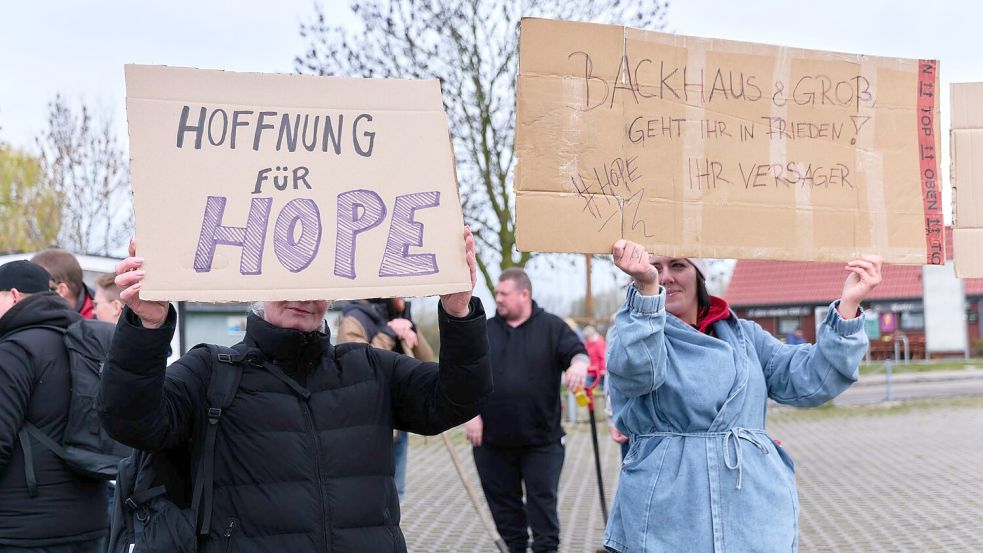 HOFFNUNG
FÜR
HOPE
BACKHAUS & GROß,
GEHT IHR IN FRIEDEN!
#HOPE
IHR VERSAGER
TOP
OBEN
TO